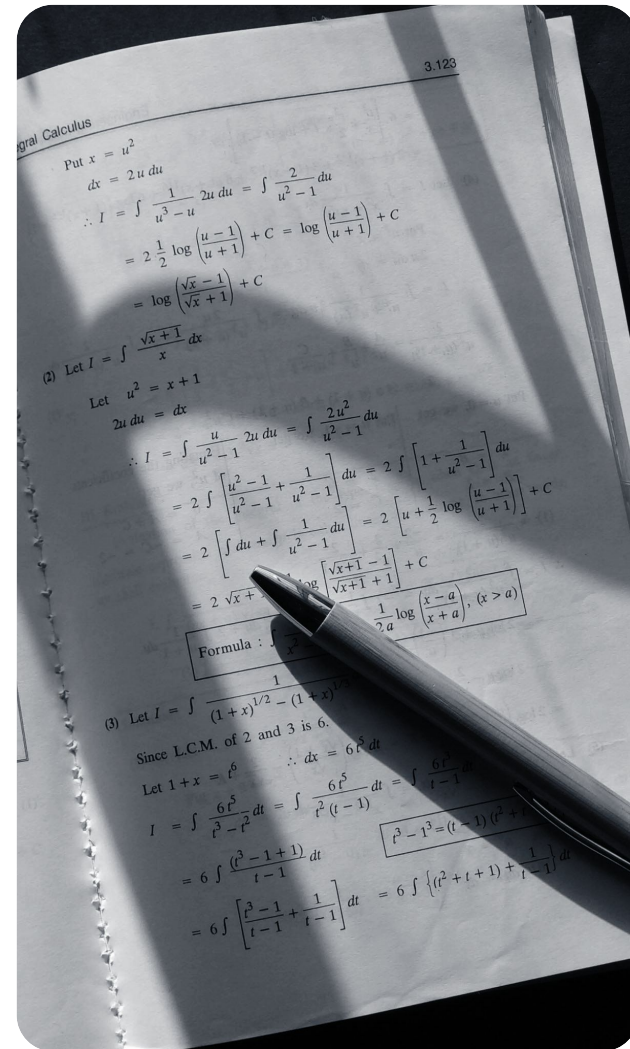 3.123
gral Calculus
Put x = u²
dx = 2u du
∴ I = ∫ 1/(u³ − u) 2u du = ∫ 2/(u² − 1) du
= 2 1/2 log ((u − 1)/(u + 1)) + C = log ((u − 1)/(u + 1)) + C
= log ((√x − 1)/(√x + 1)) + C
(2) Let I = ∫ √(x + 1)/x dx
Let u² = x + 1
2u du = dx
∴ I = ∫ u/(u² − 1) 2u du = ∫ 2u²/(u² − 1) du
= 2 ∫ [(u² − 1)/(u² − 1) + 1/(u² − 1)] du = 2 ∫ [1 + 1/(u² − 1)] du
= 2 [∫ du + ∫ 1/(u² − 1) du] = 2 [u + 1/2 log ((u − 1)/(u + 1))] + C
= 2 √x + log [(√(x+1) − 1)/(√(x+1) + 1)] + C
Formula : ∫ 1/2a log ((x − a)/(x + a)), (x > a)
(3) Let I = ∫ 1/((1 + x)^1/2 − (1 + x)^1/
Since L.C.M. of 2 and 3 is 6.
Let 1 + x = t⁶ ∴ dx = 6t⁵ dt
I = ∫ 6t⁵/(t³ − t²) dt = ∫ 6t⁵/(t² (t − 1)) dt = ∫ 6t/(t − 1)
t³ − 1³ = (t − 1) (t² + t
= 6 ∫ (t³ − 1 + 1)/(t − 1) dt
= 6 ∫ [(t³ − 1)/(t − 1) + 1/(t − 1)] dt = 6 ∫ {(t² + t + 1) + 1/(t − 1)} dt